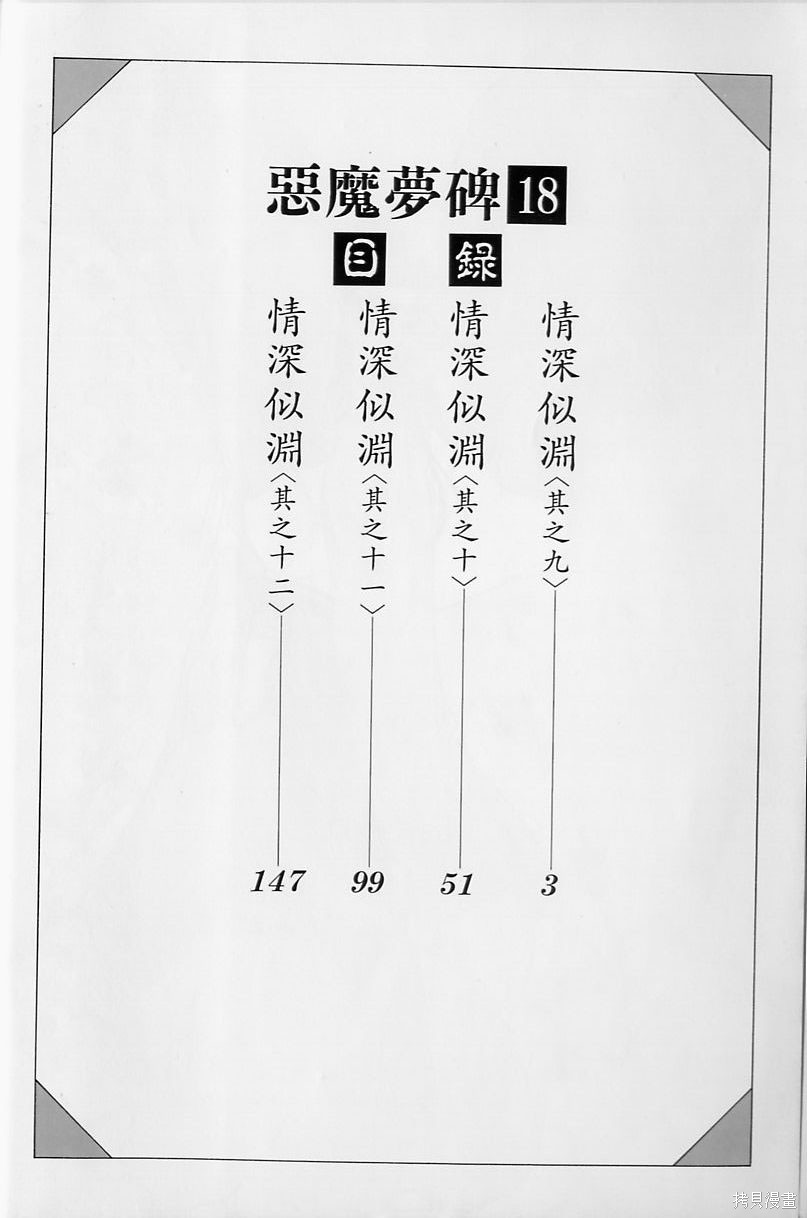 惡魔夢碑 18
目 錄
情深似淵〈其之九〉 3
情深似淵〈其之十〉 51
情深似淵〈其之十一〉 99
情深似淵〈其之十二〉 147
拷貝漫畫